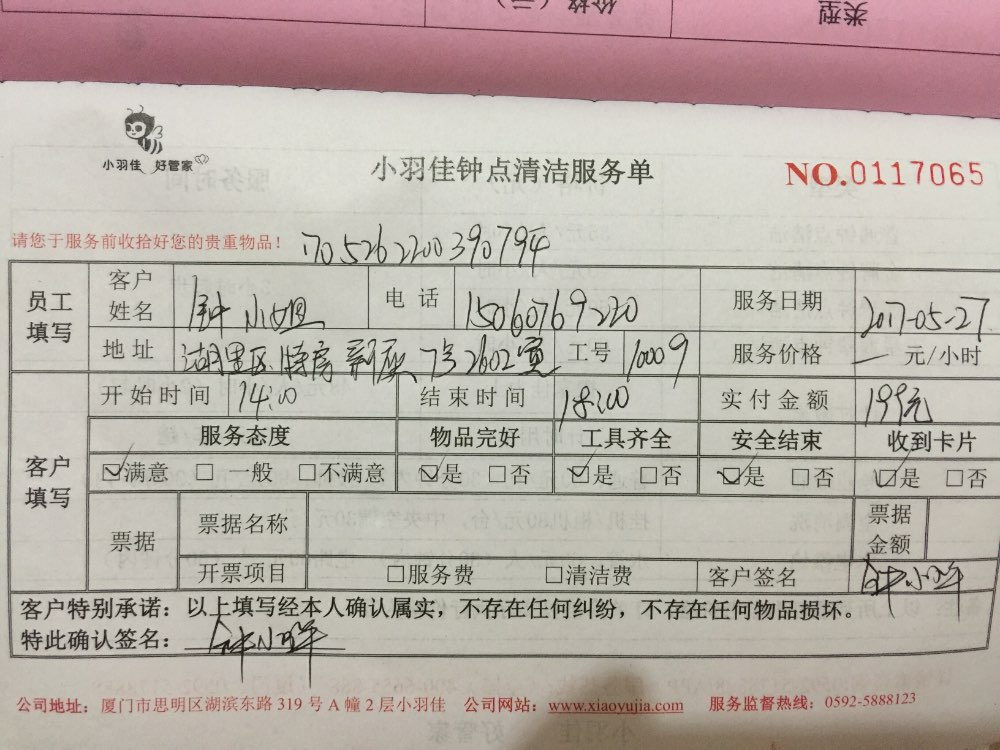 价格（元）
类型
小羽佳 好管家
小羽佳钟点清洁服务单
NO.0117065
请您于服务前收拾好您的贵重物品！
170526220039079
员工填写
客户姓名 钟小姐 电话 15060769220 服务日期 2017-05-27
地址 湖里区 7号2602室 工号 10009 服务价格 — 元/小时
客户填写
开始时间 14:00 结束时间 18:00 实付金额 199元
服务态度 物品完好 工具齐全 安全结束 收到卡片
☑满意 □一般 □不满意 ☑是 □否 ☑是 □否 ☑是 □否 ☑是 □否
票据 票据名称 票据金额
开票项目 □服务费 □清洁费 客户签名
客户特别承诺：以上填写经本人确认属实，不存在任何纠纷，不存在任何物品损坏。
特此确认签名：
公司地址：厦门市思明区湖滨东路319号A幢2层小羽佳 公司网站：www.xiaoyujia.com 服务监督热线：0592-5888123